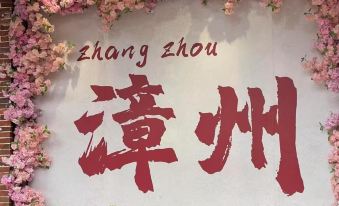 zhang zhou
漳州